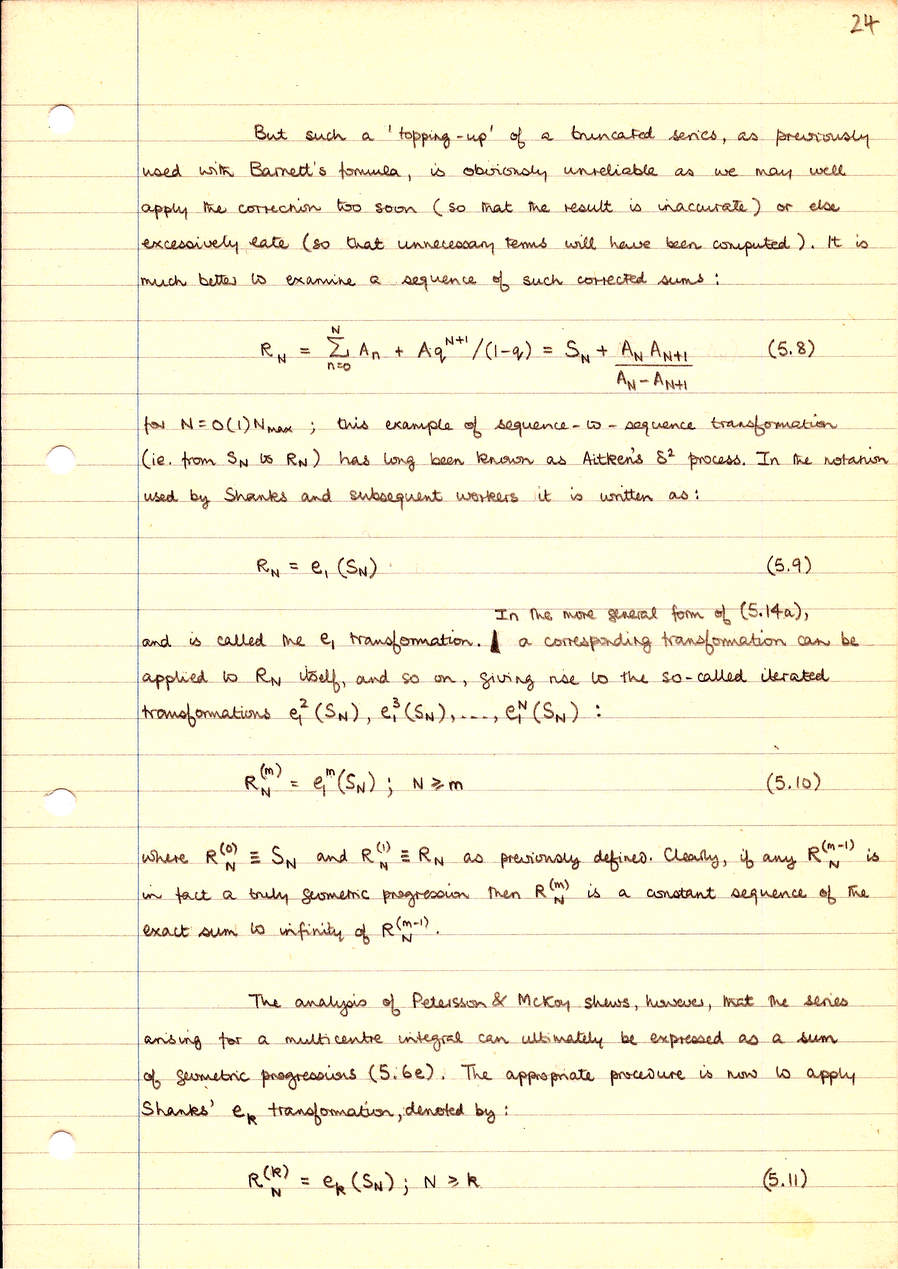 24
But such a 'topping-up' of a truncated series, as previously
used with Barnett's formula, is obviously unreliable as we may well
apply the correction too soon (so that the result is inaccurate) or else
excessively late (so that unnecessary terms will have been computed). It is
much better to examine a sequence of such corrected sums:
R_N = Σ_{n=0}^{N} A_n + A q^{N+1}/(1-q) = S_N + A_N A_{N+1} / (A_N - A_{N+1}) (5.8)
for N=0(1)N_max ; this example of sequence-to-sequence transformation
(ie. from S_N to R_N) has long been known as Aitken's δ² process. In the notation
used by Shanks and subsequent workers it is written as:
R_N = e_1 (S_N) (5.9)
In the more general form of (5.14a),
and is called the e_1 transformation. a corresponding transformation can be
applied to R_N itself, and so on, giving rise to the so-called iterated
transformations e_1^2 (S_N), e_1^3 (S_N), ...., e_1^N (S_N) :
R_N^{(m)} = e_1^m (S_N) ; N ⩾ m (5.10)
where R_N^{(0)} ≡ S_N and R_N^{(1)} ≡ R_N as previously defined. Clearly, if any R_N^{(m-1)} is
in fact a truly geometric progression then R_N^{(m)} is a constant sequence of the
exact sum to infinity of R_N^{(m-1)}.
The analysis of Petersson & McKoy shews, however, that the series
arising for a multicentre integral can ultimately be expressed as a sum
of geometric progressions (5.6e). The appropriate procedure is now to apply
Shanks' e_k transformation, denoted by:
R_N^{(k)} = e_k (S_N) ; N ⩾ k (5.11)